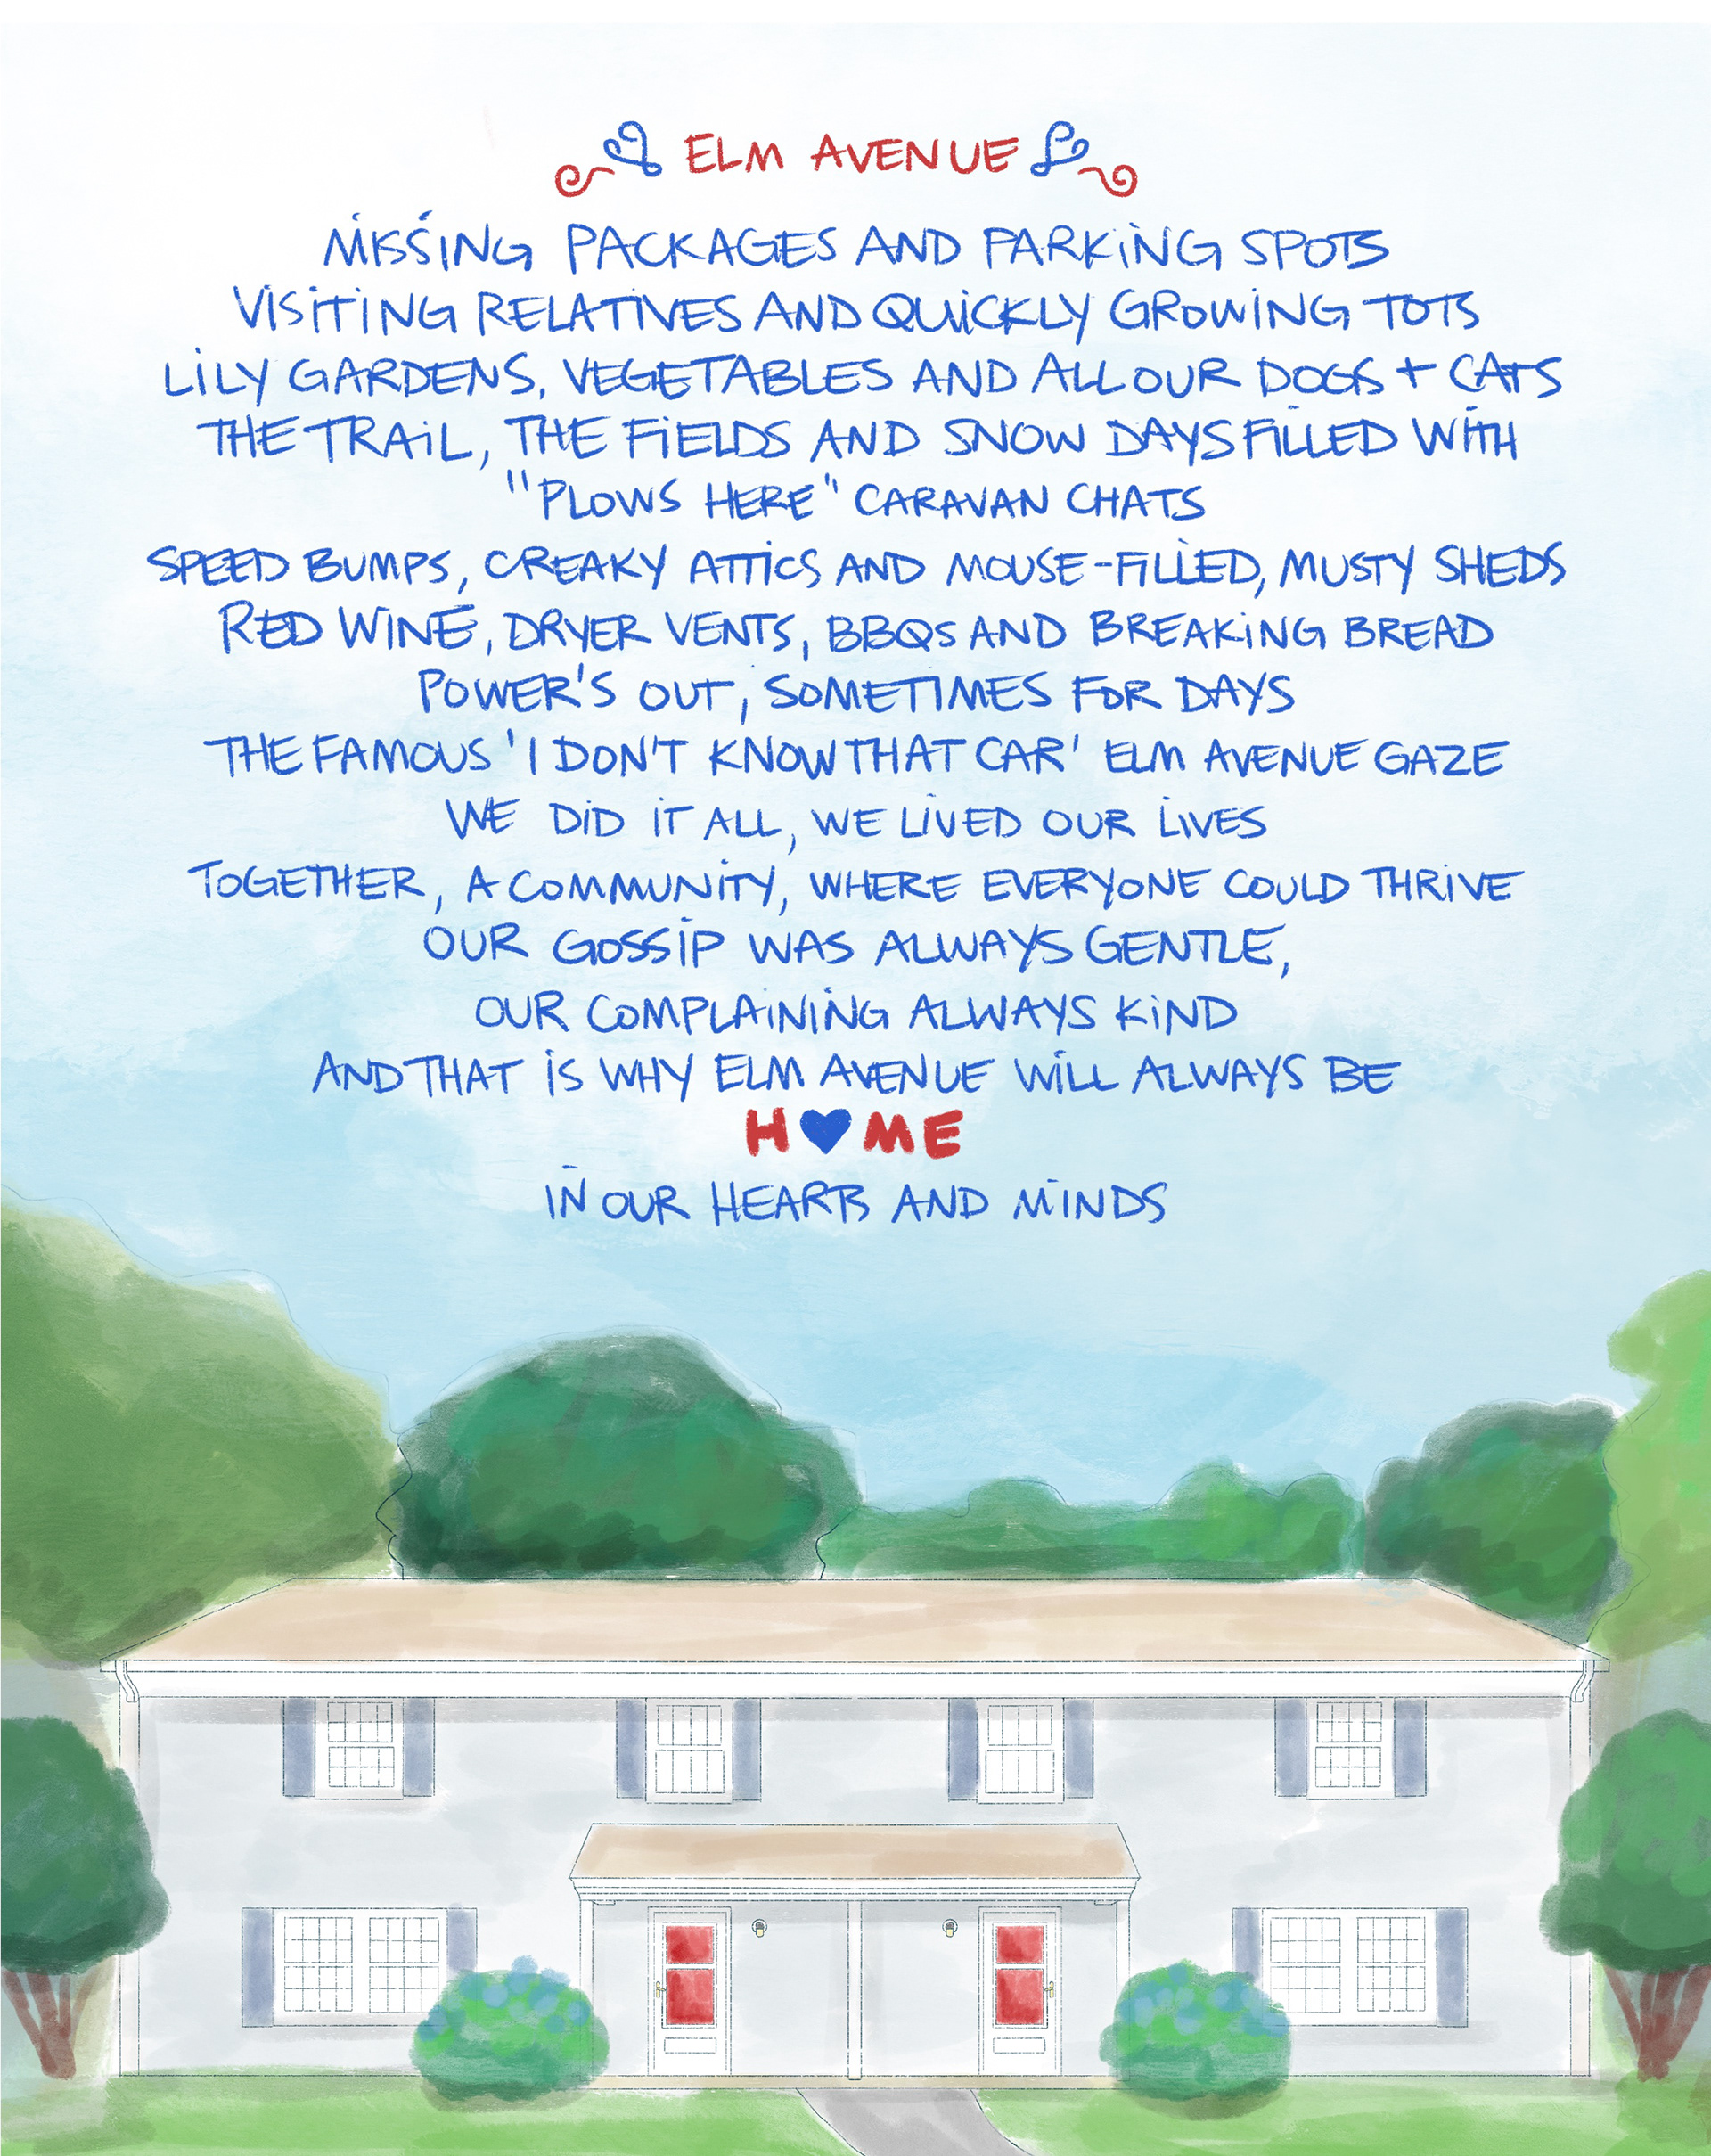 ELM AVENUE
MISSING PACKAGES AND PARKING SPOTS
VISITING RELATIVES AND QUICKLY GROWING TOTS
LILY GARDENS, VEGETABLES AND ALL OUR DOGS + CATS
THE TRAIL, THE FIELDS AND SNOW DAYS FILLED WITH
"PLOWS HERE" CARAVAN CHATS
SPEED BUMPS, CREAKY ATTICS AND MOUSE-FILLED, MUSTY SHEDS
RED WINE, DRYER VENTS, BBQS AND BREAKING BREAD
POWER'S OUT, SOMETIMES FOR DAYS
THE FAMOUS 'I DON'T KNOW THAT CAR' ELM AVENUE GAZE
WE DID IT ALL, WE LIVED OUR LIVES
TOGETHER, A COMMUNITY, WHERE EVERYONE COULD THRIVE
OUR GOSSIP WAS ALWAYS GENTLE,
OUR COMPLAINING ALWAYS KIND
AND THAT IS WHY ELM AVENUE WILL ALWAYS BE
H💙ME
IN OUR HEARTS AND MINDS